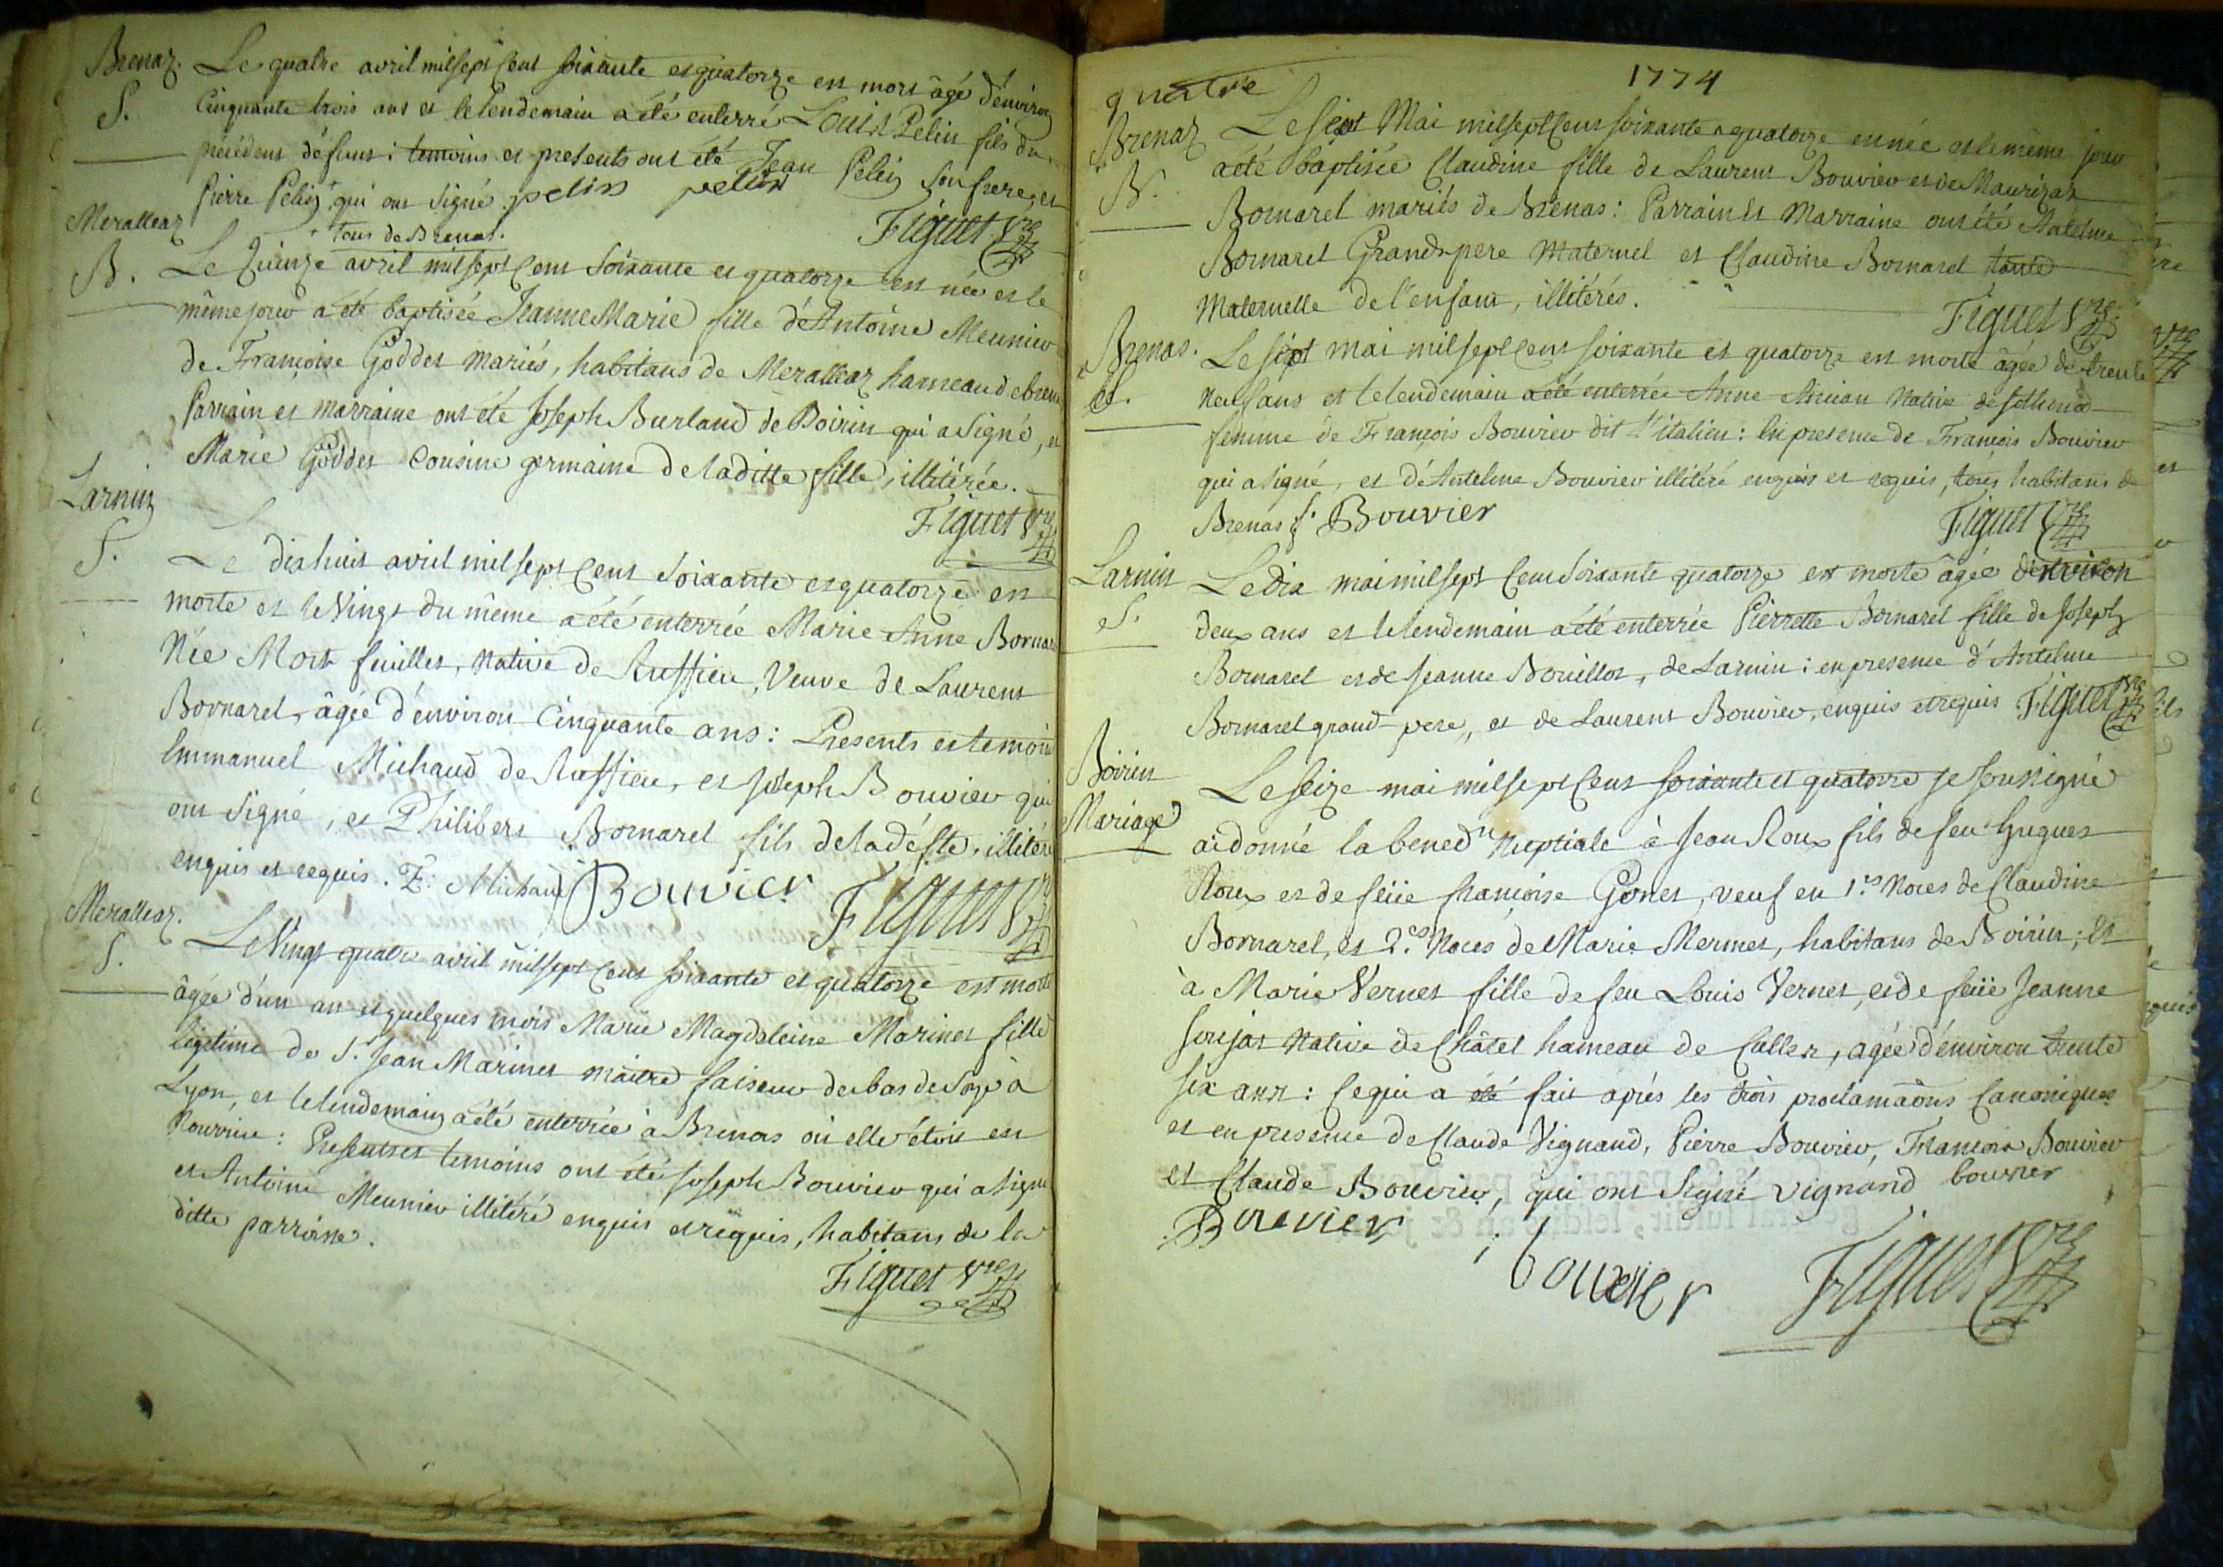 Brenaz. Le quatre avril mil sept cent soixante et quatorze est mort âgé d'environ
S. Cinquante trois ans et le lendemain a été enterré Louis Pelin fils du
précédent défunt : temoins et presents ont été Jean Pelin son frere, et
Pierre Pelin + qui ont signé. pelin pelin
+ tous de Brenas. Figuet Vre
Meralleaz
B. Le Quinze avril mil sept cent soixante et quatorze est née et le
même jour a été baptisée Jeanne Marie fille d'Antoine Meunier
de Françoise Goddet mariés, habitans de Meralleaz hameau de bren
Parrain et marraine ont été Joseph Burland de Boirin qui a signé, et
Marie Goddet Cousine germaine de la ditte fille, illitérée.
Figuet Vre
Larnin
S. Le dix huit avril mil sept cent soixante et quatorze est
morte et le Vingt du même a été enterrée Marie Anne Borna
Née Mort feuillet, Native de Ruffieu, Veuve de Laurent
Bornarel, âgée d'environ Cinquante ans : Presents et temoin
Emmanuel Michaud de Ruffieu, et Joseph Bouvier qui
ont signé, et Philibert Bornarel fils de la défte, illitéré
enquis et requis. E: Michaud Bouvier Figuet Vre
Meralleaz.
S. Le Vingt quatre avril mil sept cent soixante et quatorze est morte
âgée d'un an et quelques mois Marie Magdeleine Marinet fille
légitime de S. Jean Marinet maitre faiseur de bas de soye à
Lyon, et le lendemain a été enterrée à Brenas où elle étoit en
Nourrice : Presents et temoins ont été Joseph Bouvier qui a signé
et Antoine Meunier illitéré enquis et requis, habitans de la
ditte parroisse.
Figuet Vre
quatre 1774
Brenaz Le sept Mai mil sept cent soixante quatorze est née et le même jour
B. a été baptisée Claudine fille de Laurent Bouvier et de
Bornarel mariés de Brenas : Parrain et Marraine ont été Antelme
Bornarel Grand-pere Maternel et Claudine Bornarel tante
Maternelle de l'enfant, illitérés.
Figuet Vre
Brenas. Le sept mai mil sept cent soixante et quatorze est morte âgée de trente
S. Neuf ans et le lendemain a été enterrée Anne Native de
femme de François Bouvier dit L'italien : En presence de François Bouvier
qui a signé, et d'Antelme Bouvier illitéré enquis et requis, tous habitans de
Brenas f. Bouvier Figuet Vre
Larnin Le dix mai mil sept cent soixante quatorze est morte âgée d'environ
S. deux ans et le lendemain a été enterrée Pierrette Bornarel fille de Joseph
Bornarel et de Jeanne Bouillot, de Larnin : en presence d'Antelme
Bornarel grand-pere, et de Laurent Bouvier, enquis et requis Figuet Vre
Boirin
Mariage Le seize mai mil sept cent soixante et quatorze je soussigné
ai donné la bened.n Nuptiale à Jean Roux fils de feu Hugues
Roux et de feüe françoise Gonet, veuf en 1.es Noces de Claudine
Bornarel, et 2.es Noces de Marie Mermet, habitans de Boirin ; Et
à Marie Vernet fille de feu Louis Vernet, et de feüe Jeanne
Soujat Native de Châtel hameau de Culles, agée d'environ trente
six ans : Ce qui a été fait après les trois proclamaons Canoniques
et en presence de Claude Vignand, Pierre Bouvier, François Bouvier
et Claude Bouvier, qui ont signé vignand bouvier
Bouvier bouvier Figuet Vre